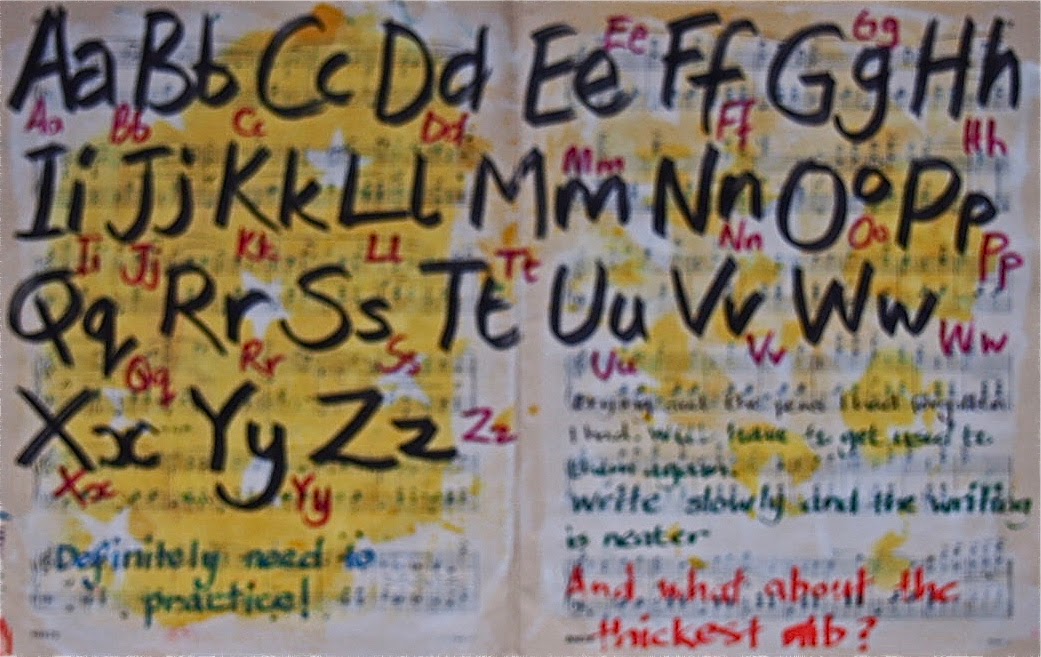 Aa Bb Cc Dd Ee Ff Gg Hh
Ee Gg
Aa Bb Cc Dd Ff Hh
Ii Jj Kk Ll Mm Nn Oo Pp
Mm
Ii Jj Kk Ll Tt Nn Oo Pp
Qq Rr Ss Tt Uu Vv Ww
Qq Rr Ss Uu Vv Ww
Xx Yy Zz
Zz
Xx Yy
Definitely need to
practice!
Trying out the pens I had forgotten
I had. Will have to get used to
them again.
Write slowly and the writing
is neater
And what about the
thickest nib?